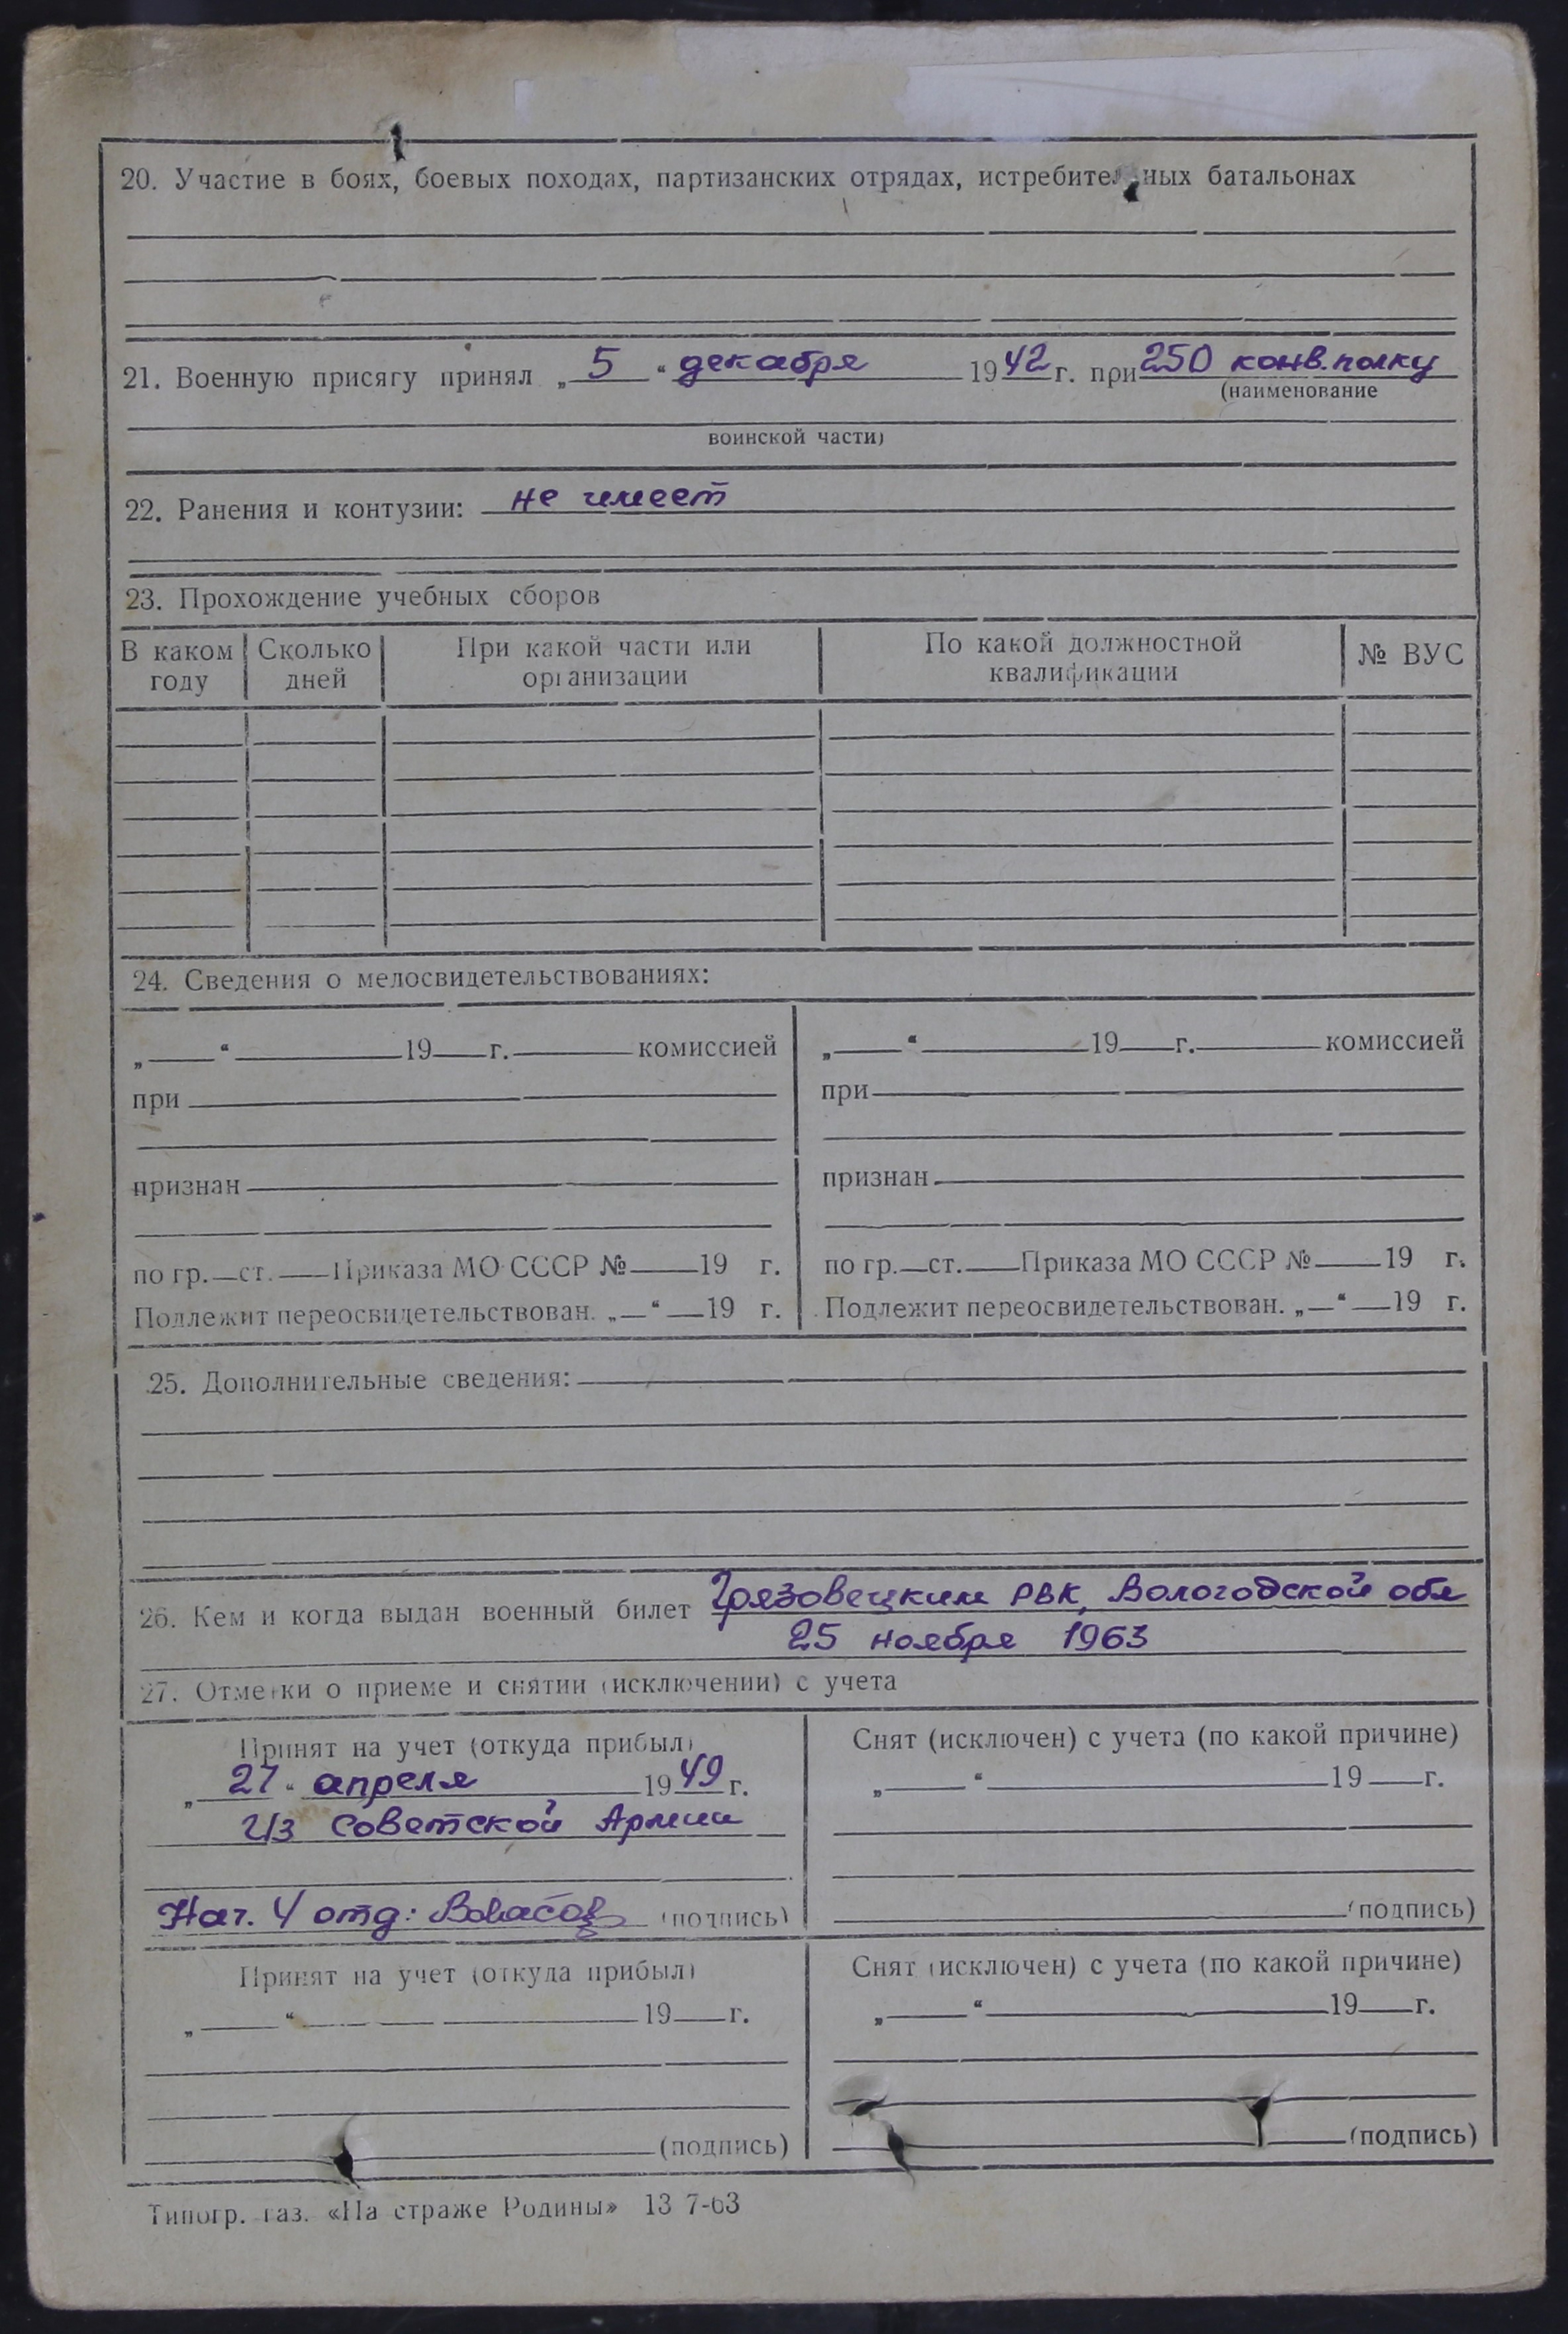 20. Участие в боях, боевых походах, партизанских отрядах, истребительных батальонах
21. Военную присягу принял „ 5 “ декабря 1942 г. при 250 конв. полку
(наименование
воинской части)
22. Ранения и контузии: не имеет
23. Прохождение учебных сборов
В каком году | Сколько дней | При какой части или организации | По какой должностной квалификации | № ВУС
24. Сведения о медосвидетельствованиях:
„ “ 19 г. комиссией
при
признан
по гр. ст. Приказа МО СССР № 19 г.
Подлежит переосвидетельствован. „ “ 19 г.
„ “ 19 г. комиссией
при
признан
по гр. ст. Приказа МО СССР № 19 г.
Подлежит переосвидетельствован. „ “ 19 г.
25. Дополнительные сведения:
26. Кем и когда выдан военный билет Грязовецким РВК, Вологодской обл
25 ноября 1963
27. Отметки о приеме и снятии (исключении) с учета
Принят на учет (откуда прибыл)
„ 27 “ апреля 1949 г.
Из Советской Армии
Нач. 4 отд: (подпись)
Снят (исключен) с учета (по какой причине)
„ “ 19 г.
(подпись)
Принят на учет (откуда прибыл)
„ “ 19 г.
(подпись)
Снят (исключен) с учета (по какой причине)
„ “ 19 г.
(подпись)
Типогр. газ. «На страже Родины» 13 7-63